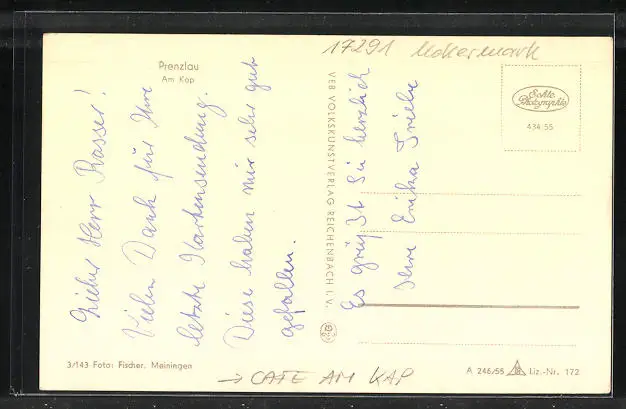 17291 Uckermark
Prenzlau
Am Kap
Lieber Herr Rasser!
Vielen Dank für Ihre
letzte Kartensendung.
Diese haben mir sehr gut
gefallen.
Es grüßt Sie herzlich
Ihre Erika Griebe
VEB VOLKSKUNSTVERLAG REICHENBACH I. V.
Echte
Photographie
434 55
3/143 Foto: Fischer, Meiningen
→ CAFE AM KAP
A 246/55 Liz.-Nr. 172